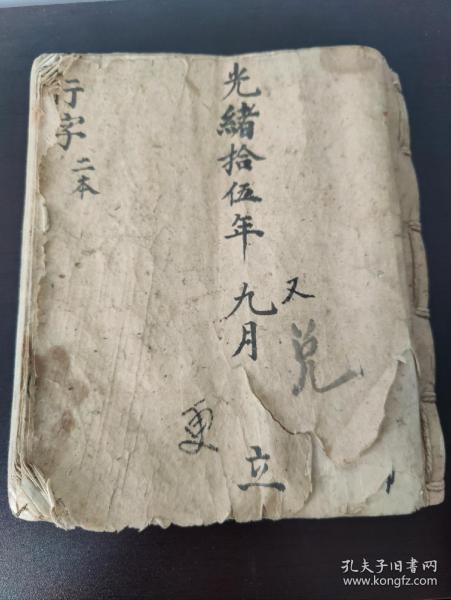 光緒拾伍年 九月 立
又
兑
更
行字 二本
孔夫子旧书网
www.kongfz.com